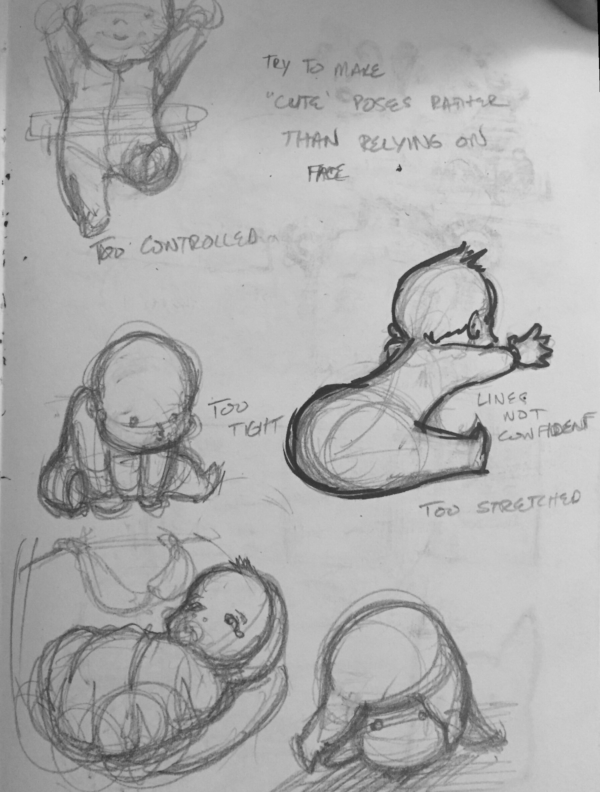 TRY TO MAKE
"CUTE" POSES RATHER
THAN RELYING ON
FACE
TOO CONTROLLED
TOO
TIGHT
LINES
NOT
CONFIDENT
TOO STRETCHED